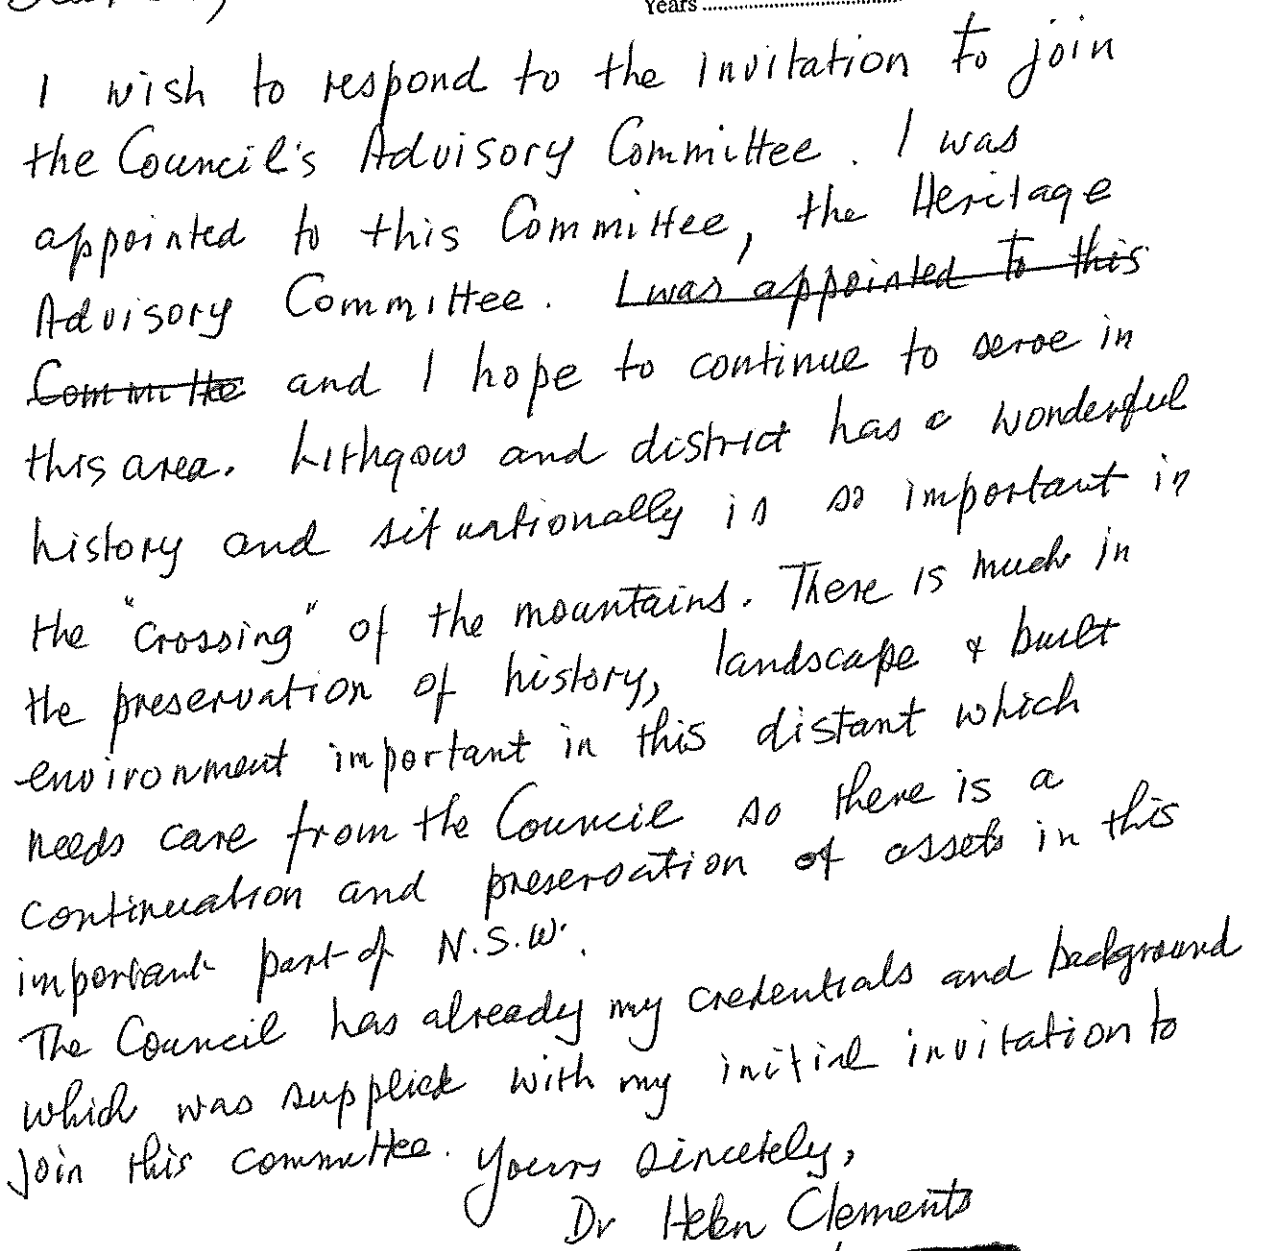 Years
I wish to respond to the invitation to join
the Council's Advisory Committee. I was
appointed to this Committee, the Heritage
Advisory Committee. I was appointed to this
Committe and I hope to continue to serve in
this area. Lithgow and district has a wonderful
history and situationally is so important in
the "crossing" of the mountains. There is much in
the preservation of history, landscape & built
environment important in this distant which
needs care from the Council so there is a
continuation and preservation of assets in this
important part of N.S.W.
The Council has already my credentials and background
which was supplied with my initial invitation to
join this committee. Yours sincerely,
Dr Helen Clements